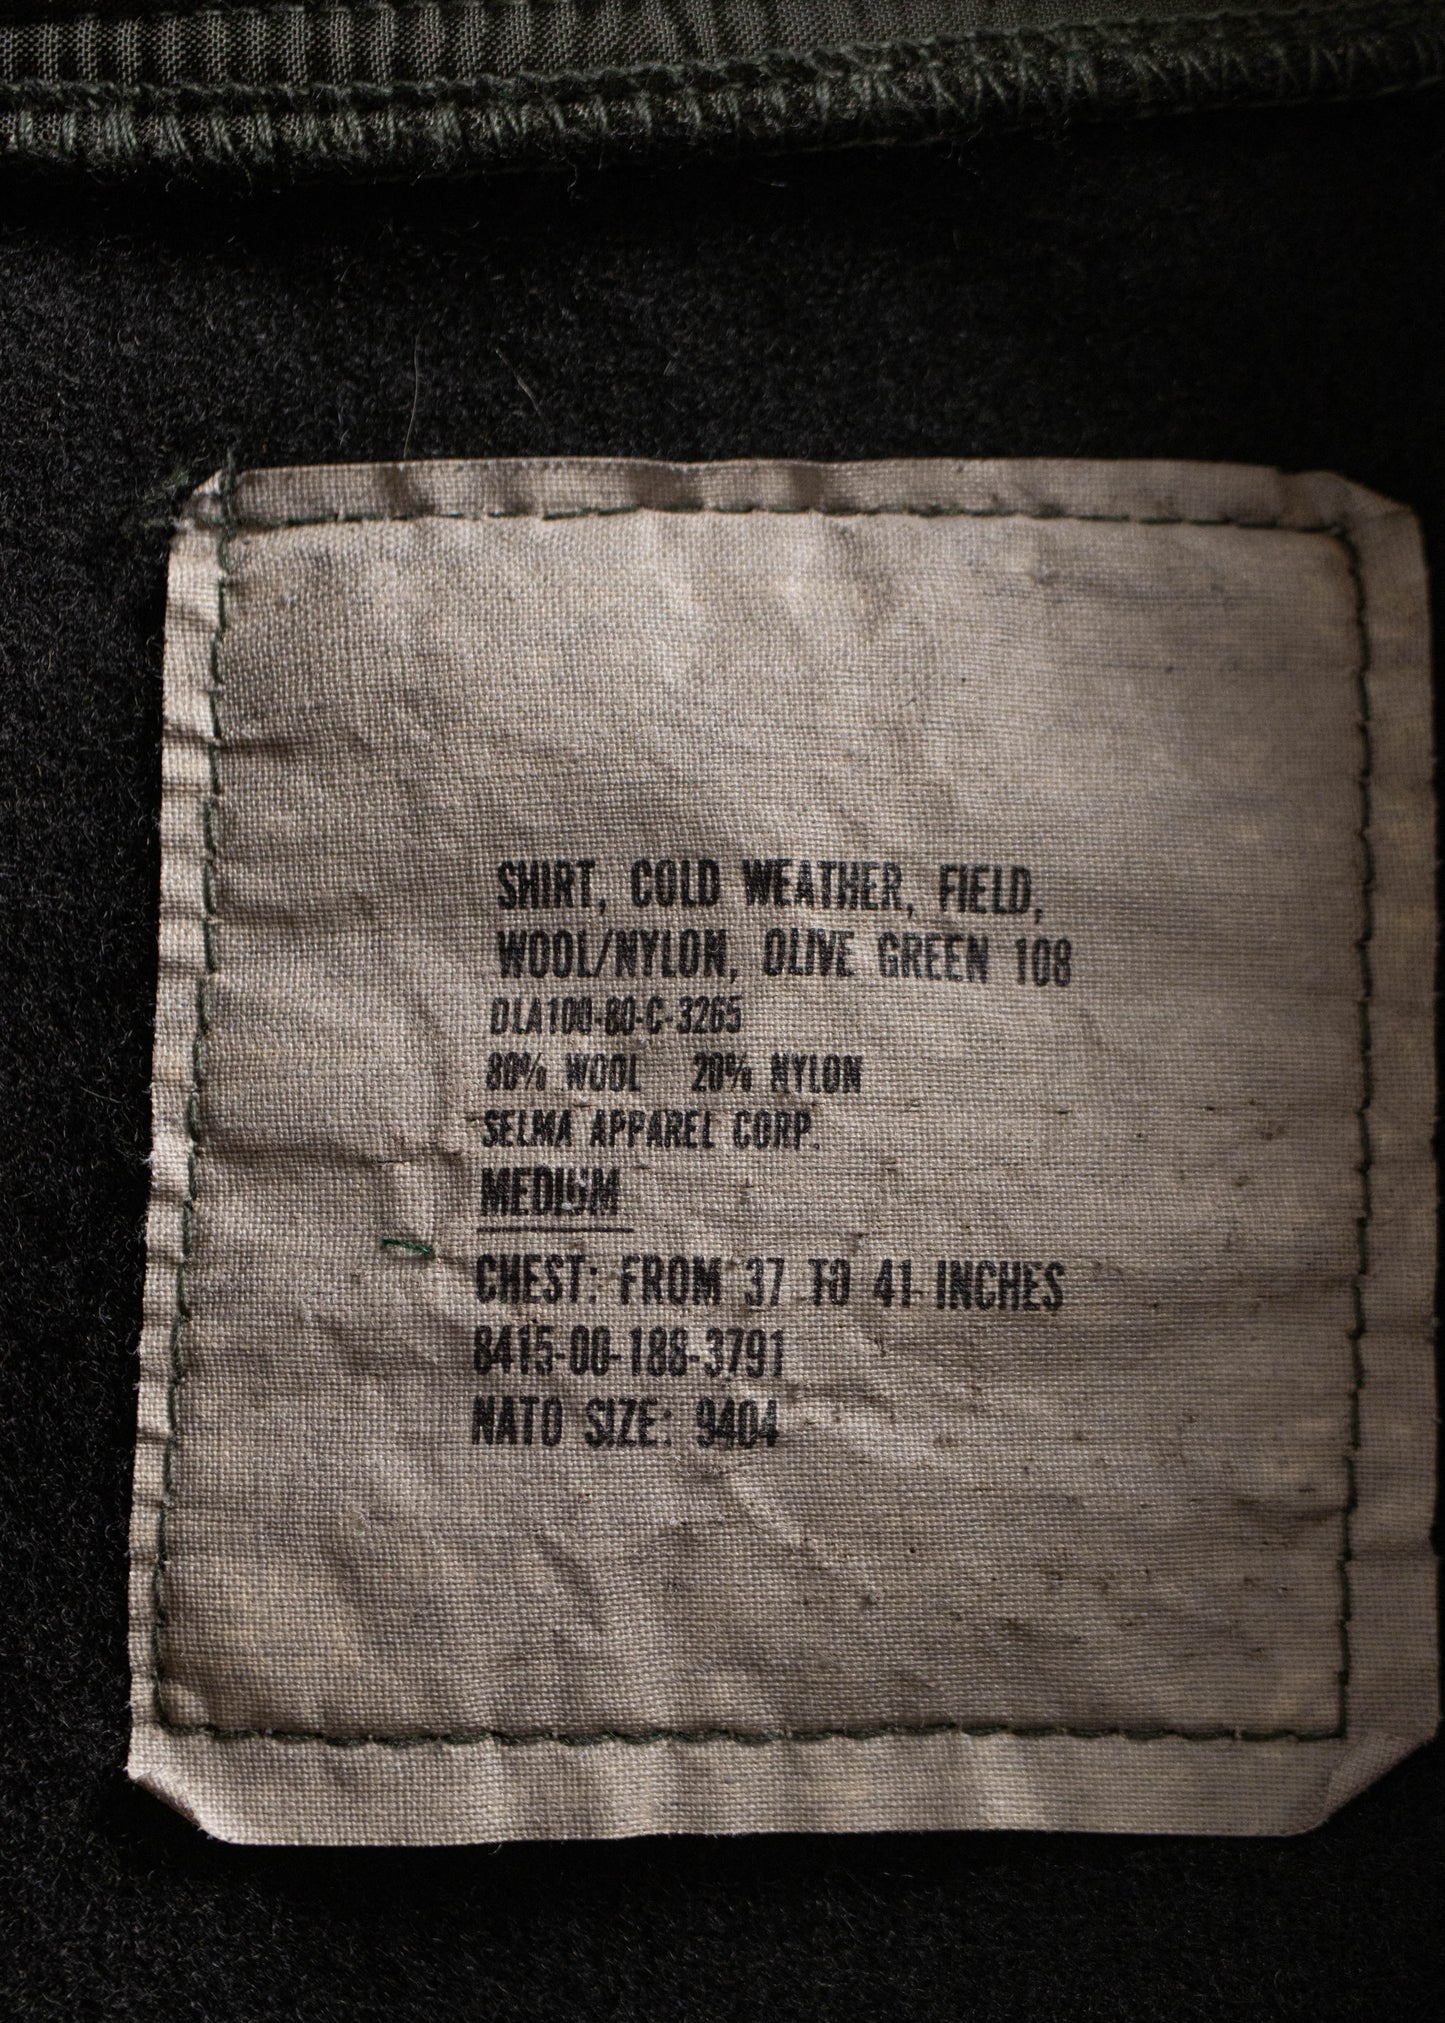 SHIRT, COLD WEATHER, FIELD,
WOOL/NYLON, OLIVE GREEN 108
DLA100-80-C-3265
80% WOOL 20% NYLON
SELMA APPAREL CORP.
MEDIUM
CHEST: FROM 37 TO 41 INCHES
8415-00-188-3791
NATO SIZE: 9404